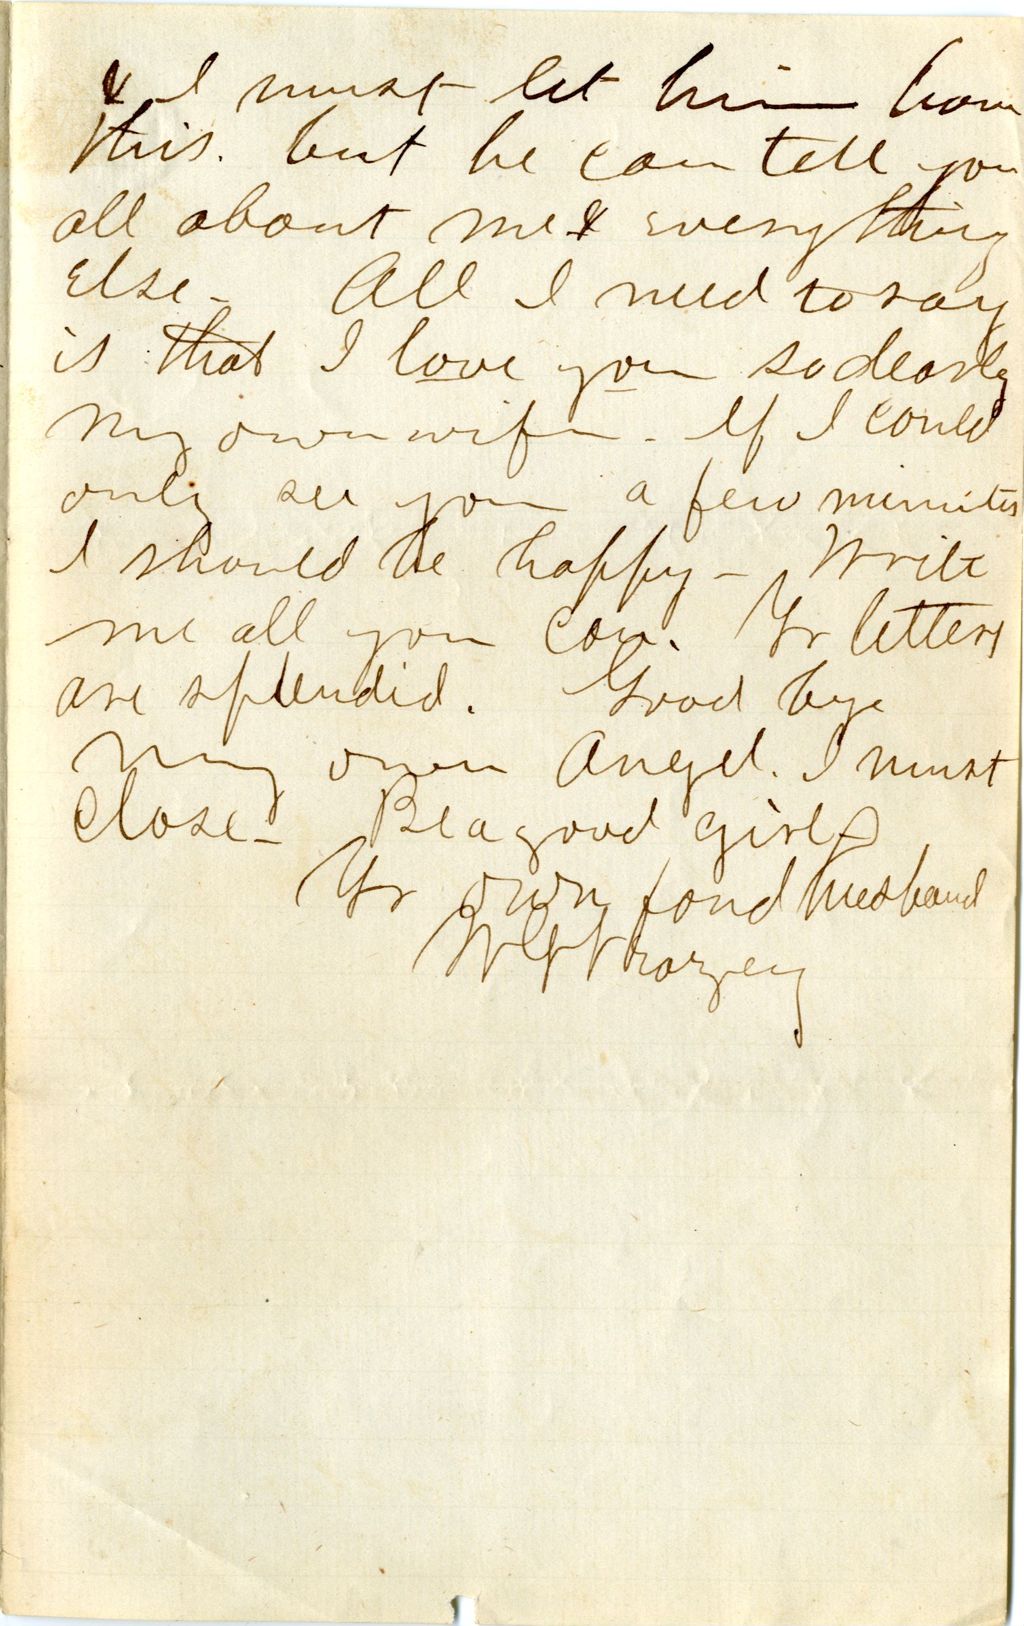 & I must let him have
this. but he can tell you
all about me & everything
Else - All I need to say
is that I love you so dearly
my own wife - If I could
only see you a few minutes
I should be happy - Write
me all you can. Yr letters
are splendid. Good bye
my own Angel. I must
close - Be a good girl
Yr own fond husband